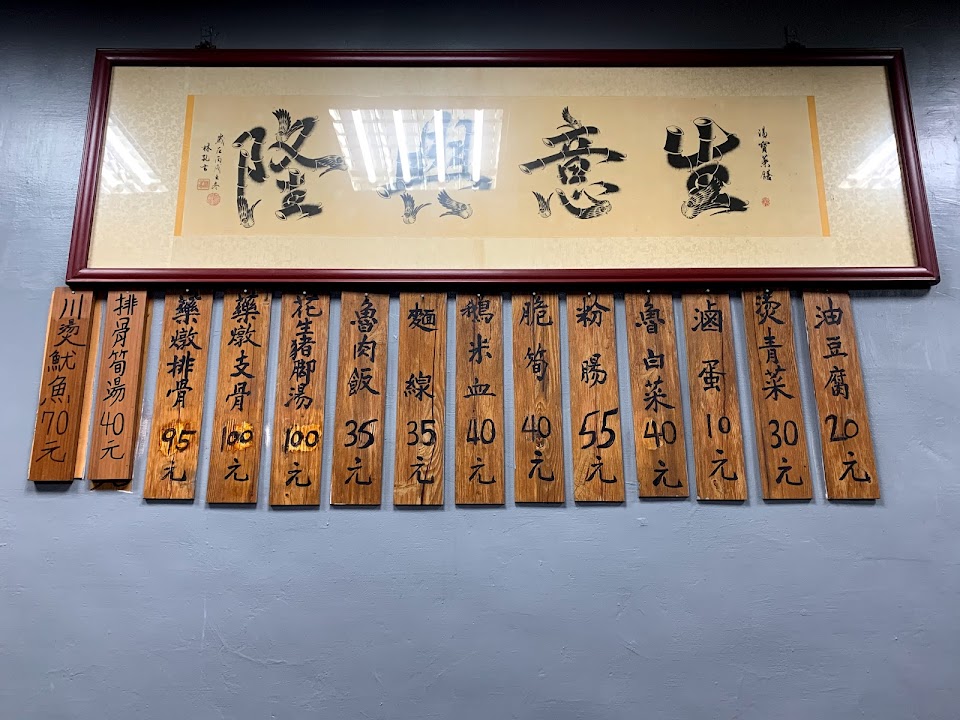 湯寶藥膳
生意興隆
歲在丙戌
油豆腐20元
燙青菜30元
滷蛋10元
魯白菜40元
粉腸55元
脆筍40元
鵝米血40元
麵線35元
魯肉飯35元
花生豬腳湯100元
藥燉支骨100元
藥燉排骨95元
排骨筍湯40元
川燙魷魚70元